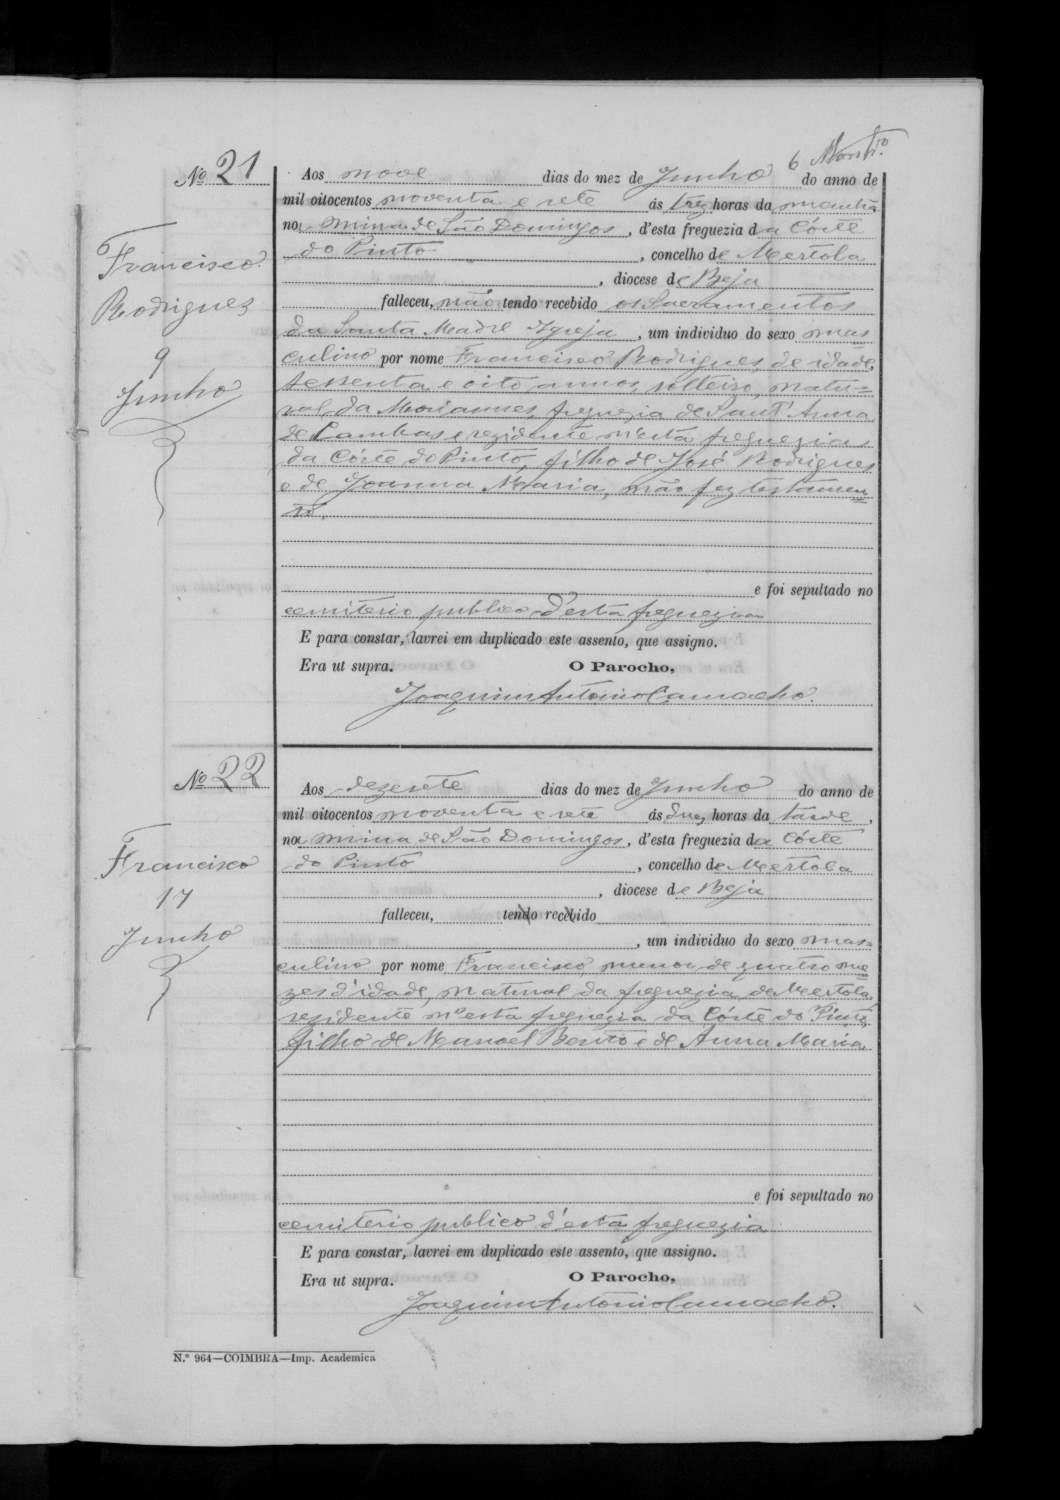 6 Montr.º
Nº 21
Aos nove dias do mez de Junho do anno de
mil oitocentos noventa e sete ás tres horas da manhã
na mina de São Domingos, d'esta freguezia da Córte
do Pinto, concelho de Mertola
, diocese de Beja
falleceu, não tendo recebido os Sacramentos
da Santa Madre Igreja, um individuo do sexo mas
culino por nome Francisco Rodrigues, de idade,
sessenta e oito annos, solteiro, natu=
ral da Moriannes, freguezia de Sant'Anna
de Cambas e rezidente n'esta freguezia
da Córte do Pinto, filho de José Rodrigues
e de Joanna Maria, não fez testamen
to.
e foi sepultado no
cemiterio publico d'esta freguezia
E para constar, lavrei em duplicado este assento, que assigno.
Era ut supra. O Parocho,
Joaquim Antonio Camacho.
Francisco
Rodrigues
9
Junho
Nº 22
Aos dezesete dias do mez de Junho do anno de
mil oitocentos noventa e sete ás duas horas da tarde,
na mina de São Domingos, d'esta freguezia da Córte
do Pinto, concelho de Mertola
, diocese de Beja
falleceu, tendo recebido
, um individuo do sexo mas=
culino por nome Francisco, menor de quatro me
zes d'idade, natural da freguezia de Mertola,
rezidente n'esta freguezia da Córte do Pinto,
filho de Manoel Bento e de Anna Maria.
e foi sepultado no
cemiterio publico d'esta freguezia
E para constar, lavrei em duplicado este assento, que assigno.
Era ut supra. O Parocho,
Joaquim Antonio Camacho.
Francisco
17
Junho
N.º 964—COIMBRA—Imp. Academica